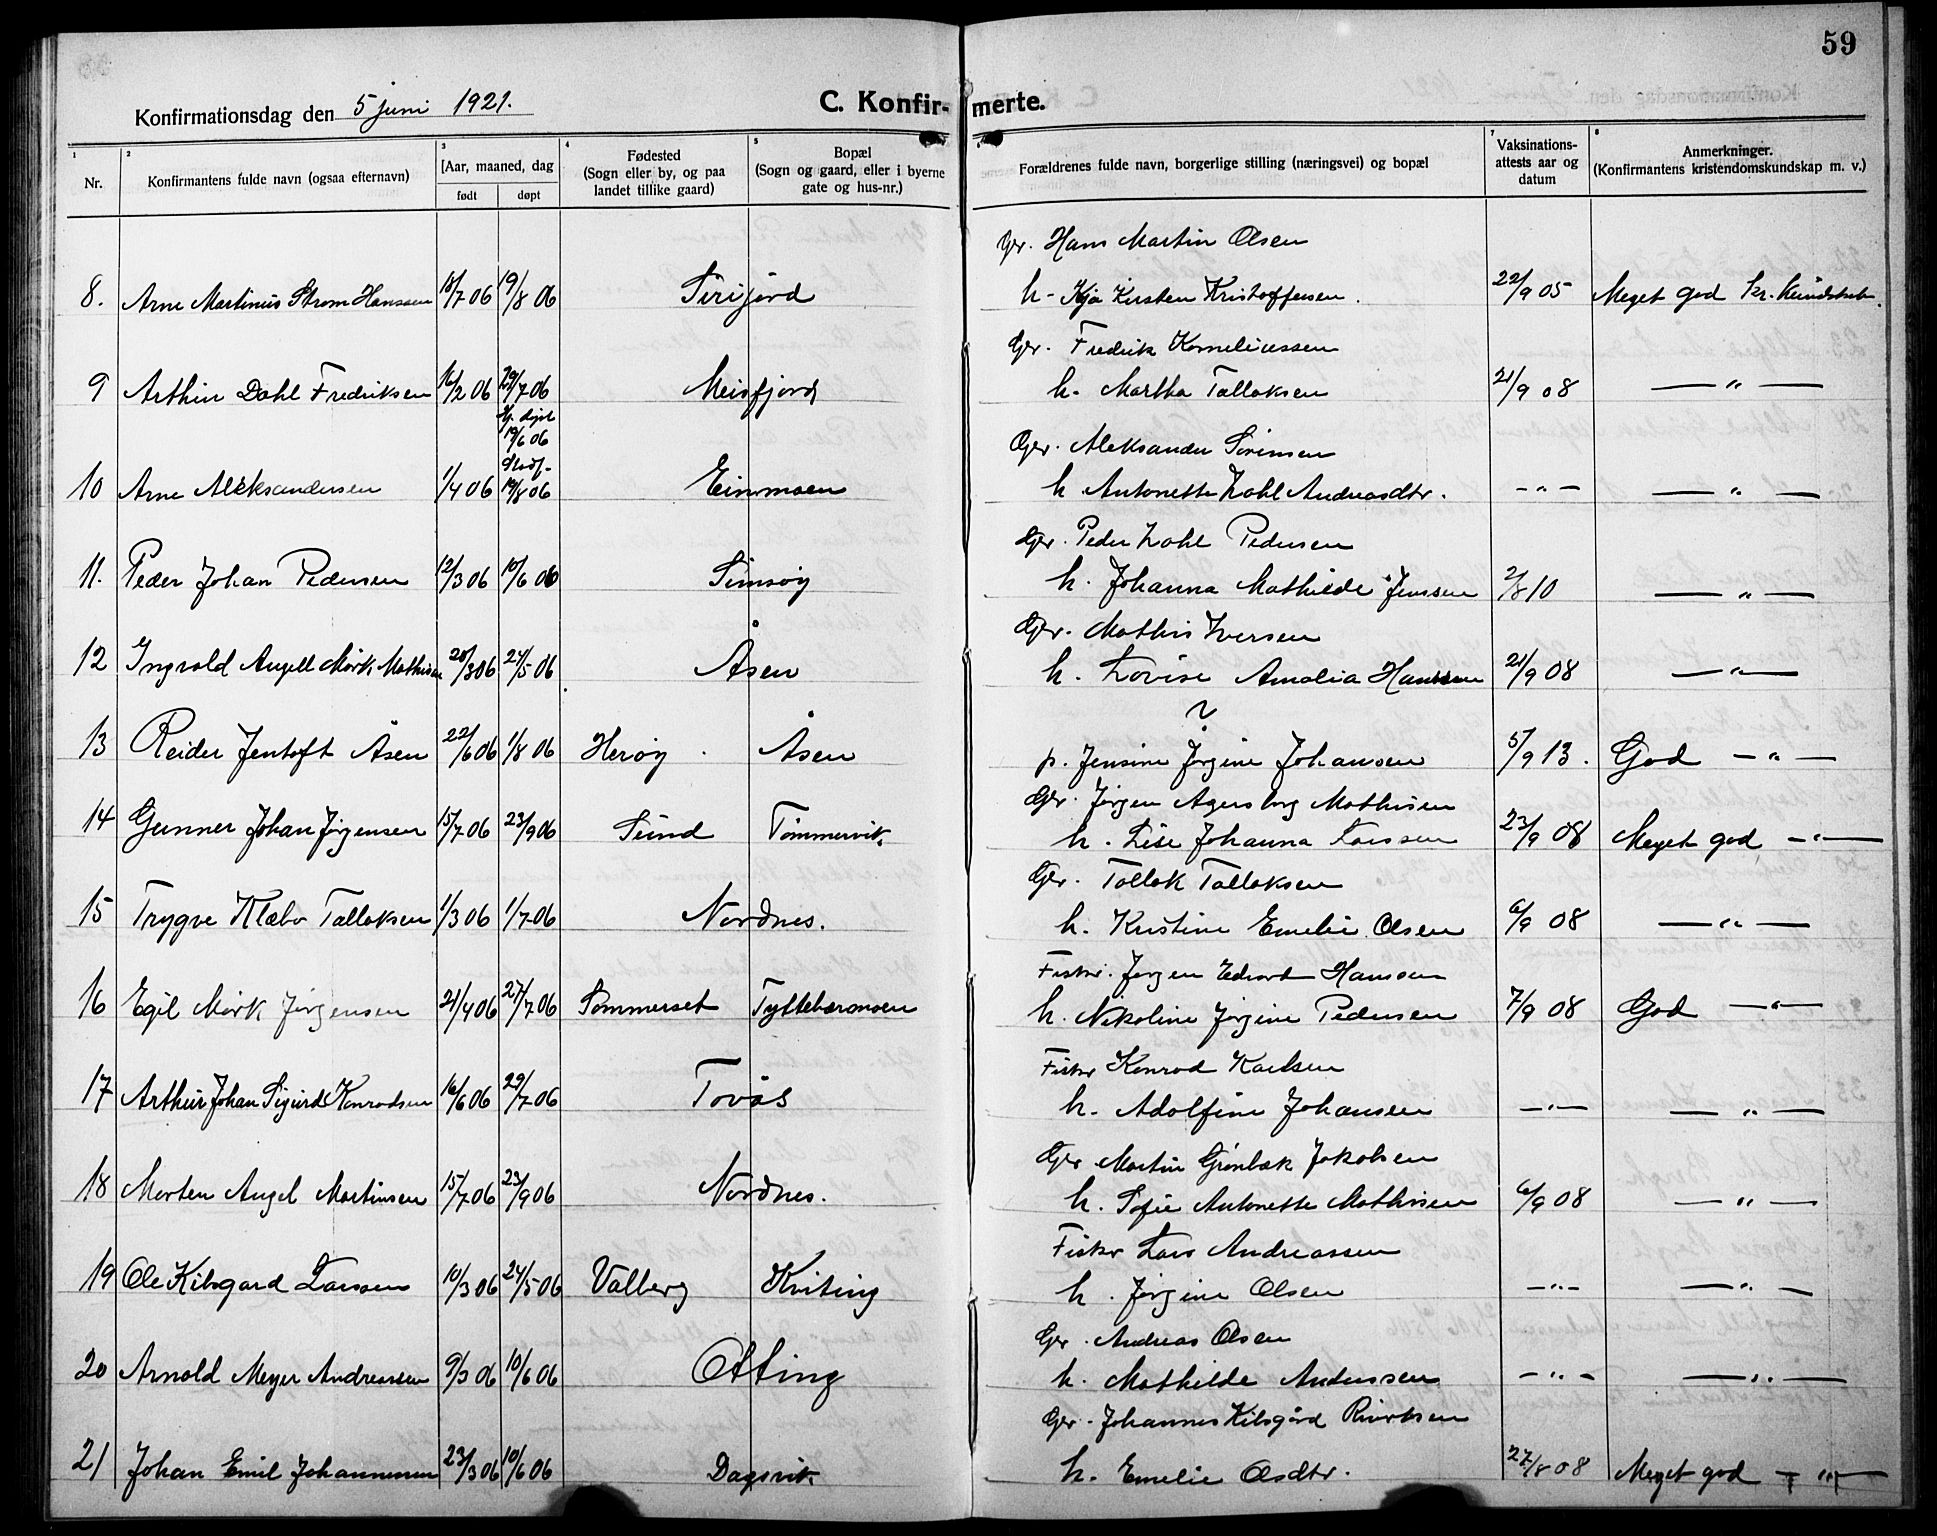 59
Konfirmationsdag den 5 juni 1921.
C. Konfirmerte.
1 Nr.
2 Konfirmantens fulde navn (ogsaa efternavn)
3 [Aar, maaned, dag født døpt
4 Fødested (Sogn eller by, og paa landet tillike gaard)
5 Bopæl (Sogn og gaard, eller i byerne gate og hus-nr.)
6 Forældrenes fulde navn, borgerlige stilling (næringsvei) og bopæl
7 Vaksinations-attests aar og datum
8 Anmerkninger. (Konfirmantens kristendomskundskap m. v.)
Gr. Hans Martin Olsen
8. Arne Martinius Strøm Hanssen 18/7 06 19/8 06 Sirijord h- Kirsten Kristoffersen. 22/9 05 Meget god kr. kundskab.
Gr. Fredrik Korneliussen
9 Arthur Dahl Fredriksen 16/2 06 29/7 06 Meisfjord h. Martha Tollaksen 21/9 08 — " —
hj. døpt 19/6 06
Gr. Aleksander Sørensen
10 Arne Aleksandersen 1/4 06 Stadf. 19/8 06 Einmoen h Antonette Andreasdtr. - " - — " —
Gr. Peder Pedersen
11. Peder Johan Pedersen 12/3 06 10/6 06 Simsøy h. Johanna Mathilde Jenssen 2/8 10 — " —
Gr. Mathis Iversen
12 Ingvald Angell Mørk Mathisen 20/3 06 24/5 06 Åsen h. Lovise Amalia Hanssen 21/9 08 — " —
?
13 Reider Jentoft Åsen 22/6 06 1/8 06 Herøy. Åsen p. Jensine Jørgine Johansen 5/9 13. God — " —
Gr. Jørgen Agersborg Mathisen
14 Gunner Johan Jørgensen 15/7 06 23/9 06 Sund Tømmervik. h. Lise Johanna Larssen 23/9 08 Meget god — " —
Gr. Tollak Tollaksen
15 Trygve Klæbo Tollaksen 1/3 06 1/7 06 Nordnes. h. Kristine Emelie Olsen 6/9 08 — " —
Fisker. Jørgen Edvard Hanssen
16 Egil Mørk Jørgensen 21/4 06 27/7 06 Sommerset Tyttebærmoen h. Nikoline Jørgine Pedersen 7/9 08 God — " —
Fisker Konrad Karlsen
17 Arthur Johan Sigurd Konradsen 16/6 06 29/7 06 Tovås h. Adolfine Johansen — " — — " —
Gr Martin Grønbæk Jakobsen
18 Morten Angel Martinsen 15/7 06 23/9 06 Nordnes. h. Sofie Antonette Mathisen 6/9 08 — " —
Fisker Lars Andreassen
19 Ole Kilsgard Larssen 10/3 06 24/5 06 Valberg Kviting h. Jørgine Olsen — " — — " —
Gr. Andreas Olsen
20 Arnold Meyer Andreassen 9/3 06 10/6 06 Otting h. Mathilde Anderssen - " - — " —
Gr. Johannes Kilsgård
21 Johan Emil Johannessen 23/3 06 10/6 06 Dagsvik h. Emelie Olsdtr. 27/8 08 Meget god — " —